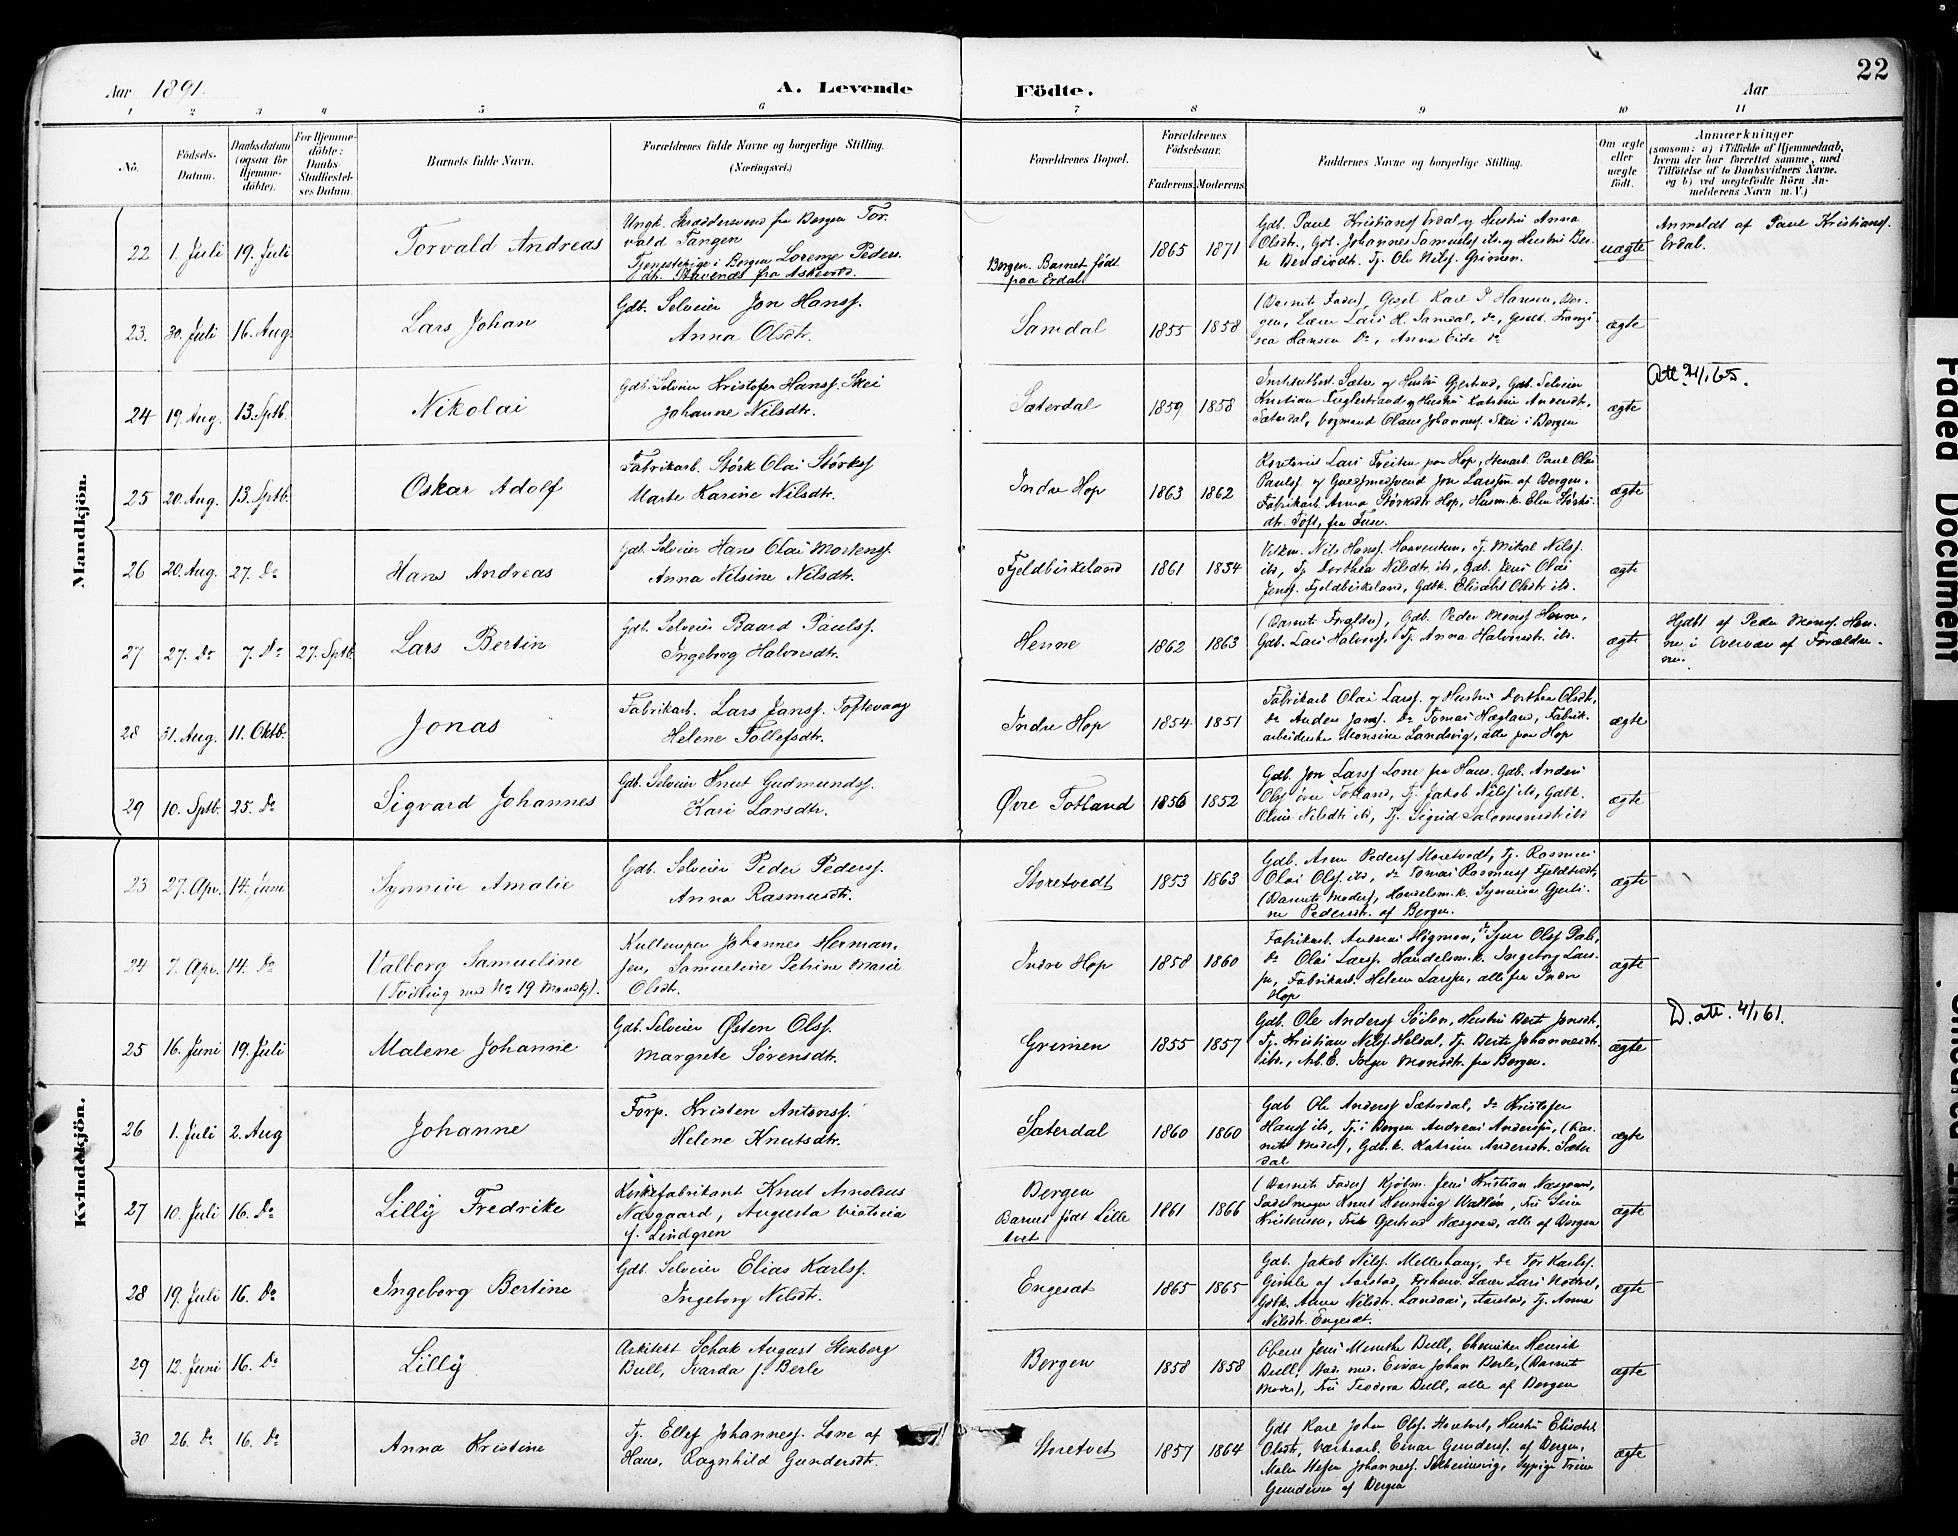 22
Aar 1891.
A. Levende
Födte.
Aar
1 2 3 4 5 6 7 8 9 10 11
No.
Födsels-Datum.
Daabsdatum (ogsaa for Hjemmedöbte).
For Hjemmedöbte: Daabs-Stadfæstelses Datum.
Barnets fulde Navn.
Forældrenes fulde Navne og borgerlige Stilling.
(Næringsvei.)
Forældrenes Bopæl.
Forældrenes Födselsaar.
Faderens. Moderens.
Faddernes Navne og borgerlige Stilling.
Om ægte eller uægte födt.
Anmærkninger
(saasom: a) i Tilfælde af Hjemmedaab, hvem der har forrettet samme, med Tilföielse af to Daabsvidners Navne, og b) ved uægtefödte Börn Anmelderens Navn m. V.)
Mandkjön.
22 1. Juli 19. Juli Torvald Andreas
Ungk. Skræddersvend fra Bergen Torvald Tangen
Tjenestepige i Bergen Lorenze Pedersdtr. Stavenes fra Askevold.
Bergen. Barnet født paa Erdal
1865 1871
Gdb. Paul Kristiansf Erdal og Hustru Anna Olsdtr., Gdb. Johannes Samuelsf ibs. og Hustru
Tj. Ole Nilsf. Grimen.
uægte
Anmeldt af Paul Kristiansf. Erdal.
23. 30. Juli 16. Aug. Lars Johan
Gdb. Selveier Jon Hansf.
Anna Olsdtr.
Samdal 1855 1858
(Barnets Fader), Gesel Karl J Hansen, Bergen, Lærer Lars H. Samdal, do,
Hansen do, Anna Eide do
ægte
24 19. Aug. 13. Sptb. Nikolai
Gdb. Selveier Kristofer Hansf. Skei
Johanne Nilsdtr.
Sæterdal 1859 1858
Sætre og Hustru Gjertrud, Gdb. Selveier Kristian Fuglestrand og Hustru Katrine Andersdtr. Sæterdal, Vogmand Olaus Johannesf. Skei i Bergen
ægte
Att. 21/1 65.
25 20. Aug. 13. Sptb. Oskar Adolf
Fabrikarb. Størk Olai Størksf
Marte Karine Nilsdtr.
Indre Hop 1863 1862
Kontorist Lars Freiten paa Hop, Stenarb. Paul Olai Paulsf og Jon Larssøn af Bergen.
Fabrikarb. Anna Størksdtr Hop, Husm.k. Elen Størksdtr. Toft, fra Fuse.
ægte
26 20. Aug. 27. Do Hans Andreas
Gdb. Selveier Hans Olai Mortensf.
Anna Nilsine Nilsdtr.
Fjeldbirkeland 1861 1854
Nils Hansf. Tj. Mikal Nilsf. ibs, Tj. Dorthea Nilsdtr. ibs, Gdb. Jens Olai Jensf. Fjeldbirkeland, Gdbk. Elisabet Olsdtr ibs.
ægte
27 27. Do 7. Do 27. Sptb. Lars Bertin
Gdb. Selveier Baard Paulsf.
Ingeborg Halvorsdtr.
Henne 1862 1863
(Barnets Forældre), Gdb. Peder Monsf Henne, Gdb. Lars Halvorsf. Tj. Anna Halvorsdtr. ibs.
ægte
Hjdbt af Peder Monsf. Henne i Overvær af Forældrene.
28 31. Aug. 11. Oktb. Jonas
Fabrikarb. Lars Jansf. Toftevaag
Helene Tollefsdtr.
Indre Hop 1854 1851
Fabrikarb Olai Larsf. og Hustru Dorthea Olsdt., do Anders Jansf. do Tomas Hægland, Fabrikarbeiderske Monsine Landsvig, alle paa Hop
ægte
29 10. Sptb. 25. Do Sigvard Johannes
Gdb. Selveier Knut Gudmundsf.
Kari Larsdtr.
Øvre Totland 1856 1852
Gdb. Jon Larsf Lone fra Haus. Gdb. Anders Olsf øvre Totland, Tj. Jakob Nilsf ibs, Gdbk. Oline Nilsdtr ibs, Tj. Sigrid Salomonsdtr ibs
ægte
Kvindekjön.
23 27. Apr. 14. Juni Synnive Amalie
Gdb. Selveier Peder Pedersf.
Anna Rasmusdtr.
Storetvedt 1853 1863
Gdb. Arne Pedersf Storetvedt, Tj. Rasmus Olai Olsf. ibs, do Tomas Rasmusf Fjeldtvedt, (Barnets Moder), Handelsm.k. Synneva Gjertine Pedersdtr. af Bergen.
ægte
24 7. Apr. 14. Do Valborg Samueline
(Tvilling med No 19 Mandkj).
Johannes Hermansen, Samueline Petrine Marie Olsdtr.
Indre Hop 1858 1860
Fabrikarb. Andreas do Sjur Olsf
do Olai Larsf. Handelsm.k. Ingeborg Larsen, Fabrikarb. Helene Larsen, alle fra Indre Hop
ægte
25 16. Juni 19. Juli Malene Johanne
Gdb. Selveier Østen Olsf.
Margrete Sørensdtr.
Grimen 1855 1857
Gdb. Ole Andersf Søilen, Hustru Berte Jonsdt., Tj. Kristian Nilsf. Heldal, Tj. Berte Johannesdtr. ibs., Monsdtr. fra Bergen.
ægte
D. att. 4/1 61.
26 1. Juli 2. Aug Johanne
Forp. Kristen Antonsf.
Helene Knutsdtr.
Sæterdal 1860 1860
Gdb Ole Andersf Sæterdal, do Kristofer Hansf ibs, Tj. i Bergen Andreas Andersen, (Barnets Moder), Gdb.k. Katrine Andersdtr. Sæterdal
ægte
27 10. Juli 16. Do Lilly Fredrike
Knut Arnoldus Næsgaard, Augusta Viktoria f. Lindgren
Bergen
Barnet født Lille tvet.
1861 1866
(Barnets Fader) Kjøbm. Jens Kristian Næsgaard, Sadelmager Knut Henning
Kristensen, Frk Gjertrud Næsgaard, alle af Bergen
ægte
28 19. Juli 16. Do Ingeborg Bertine
Gdb. Selveier Elias Karlsf.
Ingeborg Nilsdtr.
Engesæt 1865 1865
Gdb. Jakob Nilsf. Mellehaug, do Tør Karlsf.
af Aarstad, Lærer Lars
Gdbk. Anna Nilsdtr. Landaas, Aarstad, Tj. Anna Nilsdtr. Engesæt.
ægte
29 12. Juni 16. Do Lilly
Arkitekt Schak August Stenberg Bull, Ivarda f. Berle
Bergen 1858 1858
Jens Munthe Bull, Chemiker Henrik Bull, Stud. med. Einar Johan Berle, (Barnets Moder), Frk Teodora Bull, alle af Bergen
ægte
30 26. Do 16. Do Anna Kristine
Tj. Ellef Johannesf. Lone af Haus, Ragnhild Gundersdtr.
Storetvet 1857 1864
Gdb Karl Johan Olsf. Storetvet, Hustru Elisabet Olsdtr, Einar Gundersf. af Bergen, Maler Johannesf. Sypige Trine Gundersen af Bergen
ægte
Faded Document